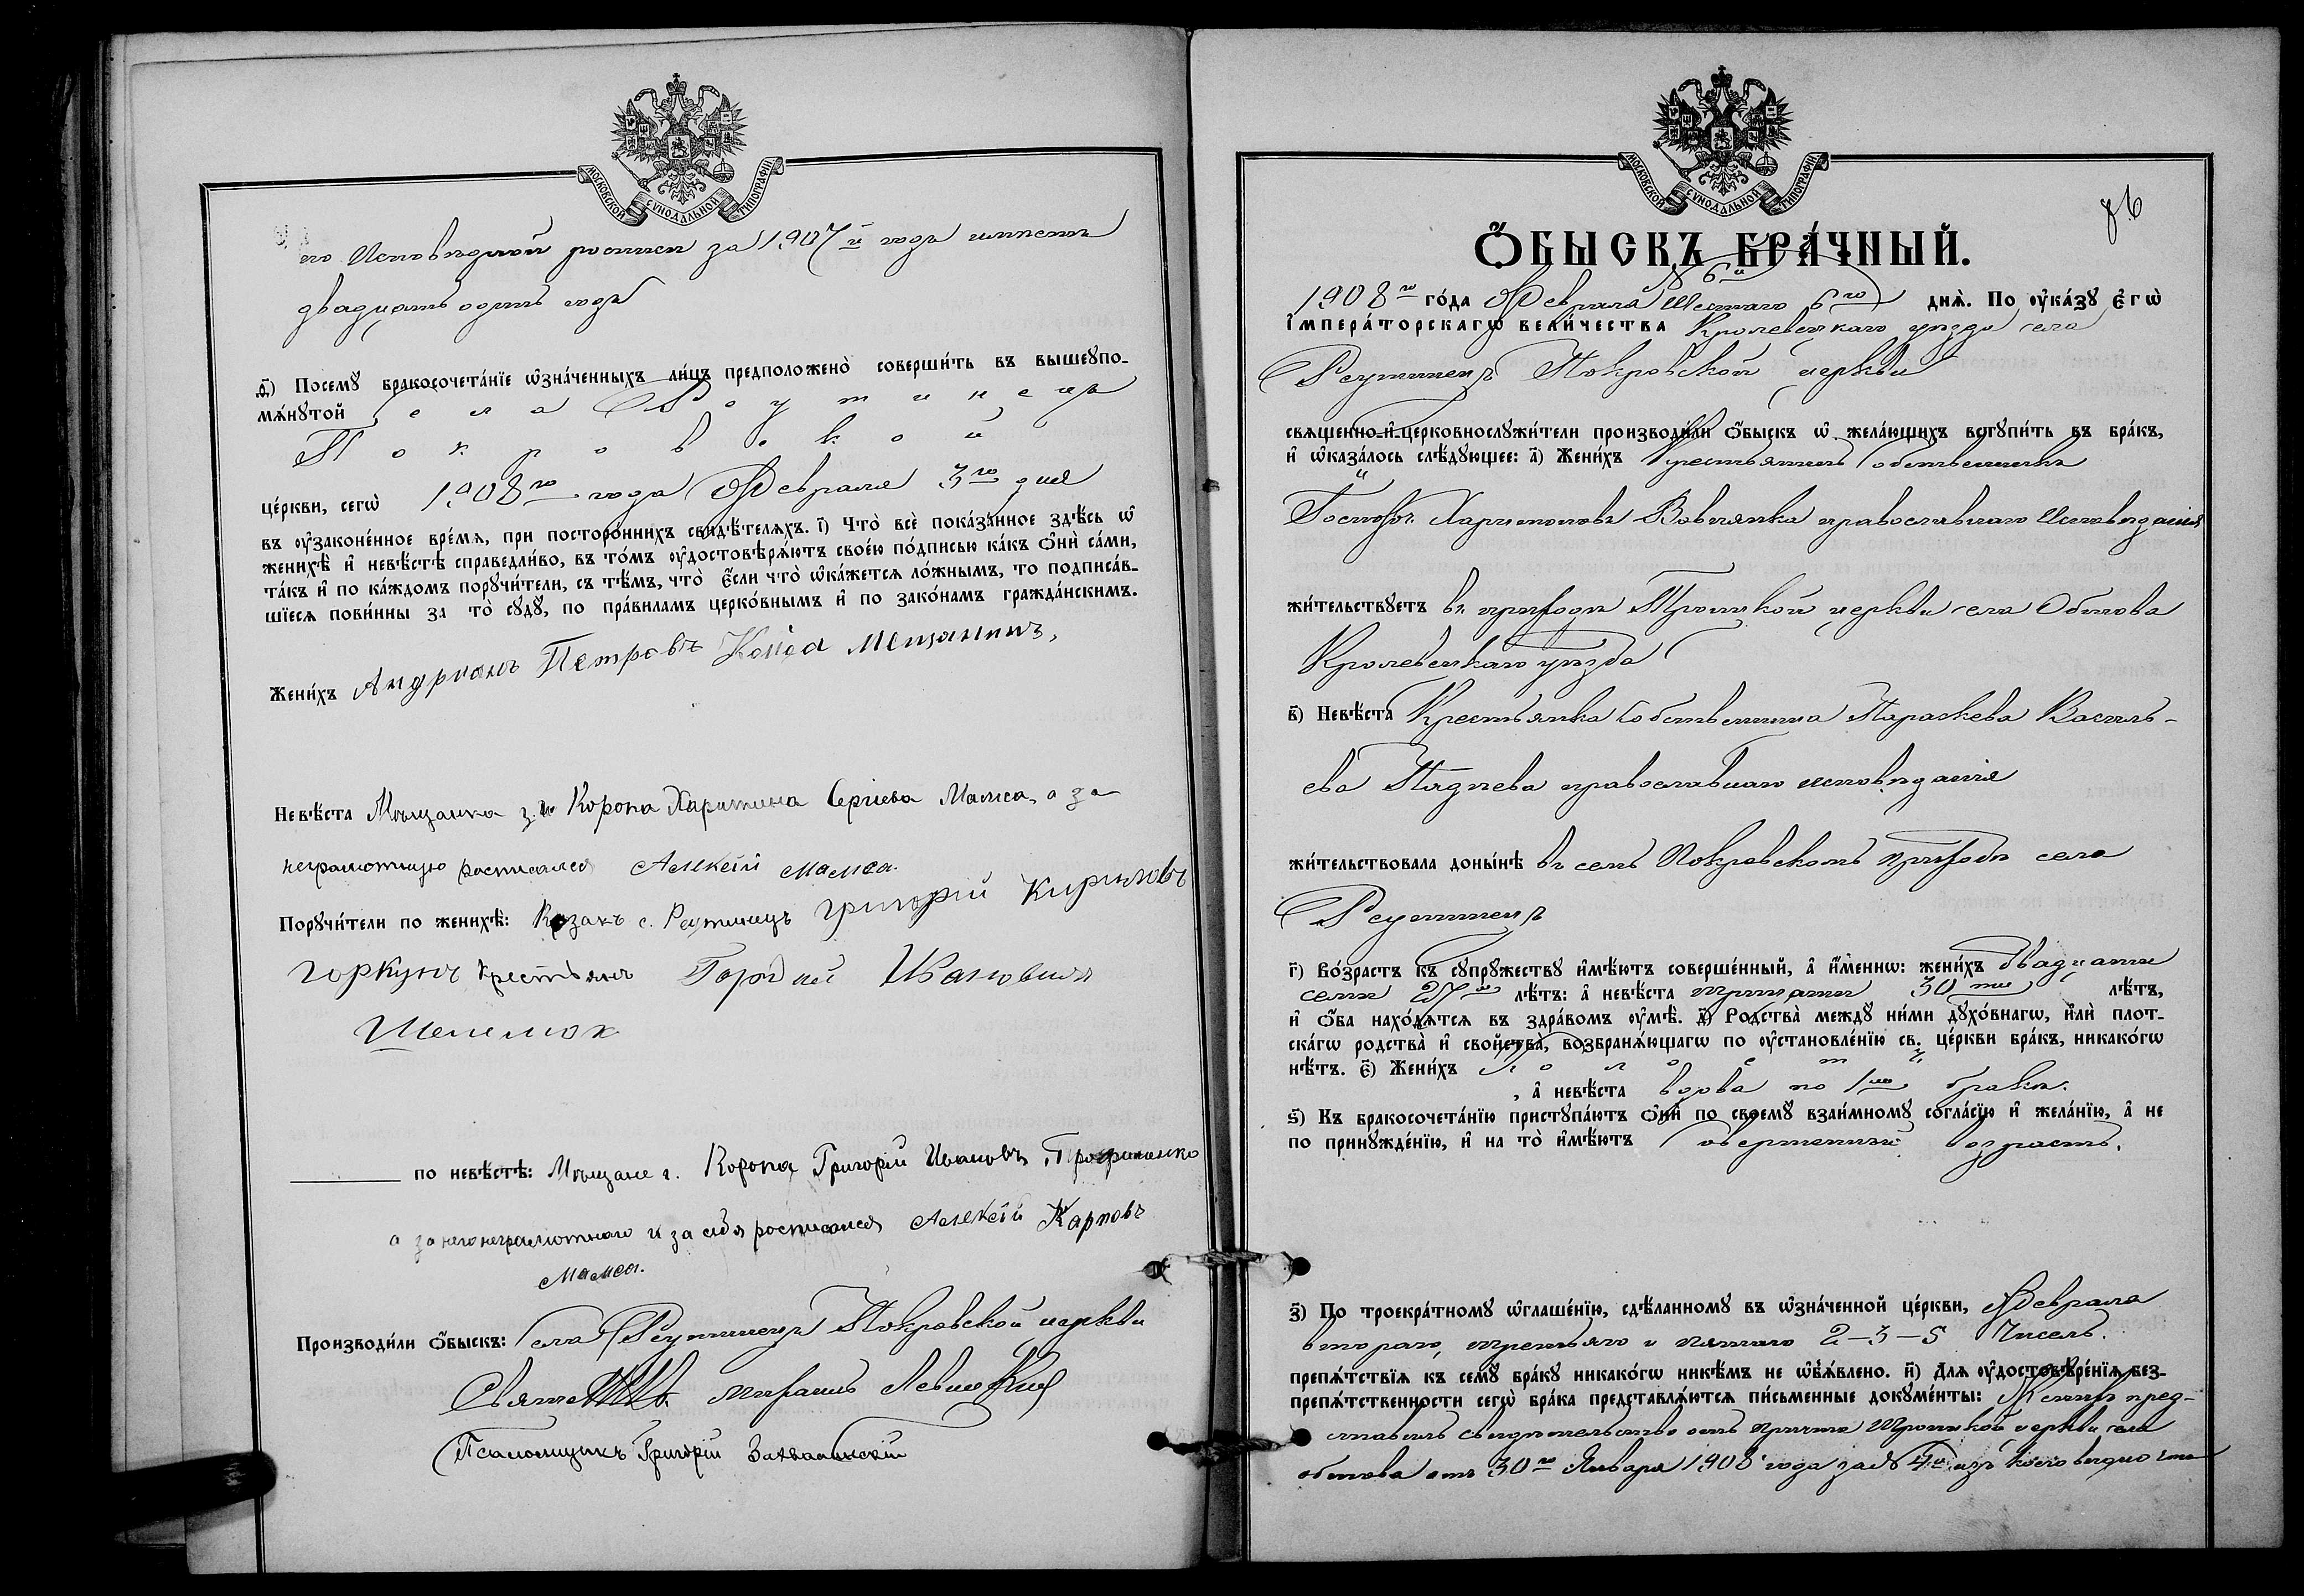 МОСКОВСКОЙ СѴНОДАЛЬНОЙ ТИПОГРАФІИ
по Исповѣдной росписи за 1907й годъ имѣетъ
двадцать одинъ годъ
д҃) Посемꙋ̀ бракосочета́нїе ѡ҆зна́ченныхъ ли́цъ предположено̀ соверши́ть въ вышеꙋпо-
мѧ́нꙋтой села Реутинецъ
Покровской
це́ркви, сегѡ̀ 1908го года Февраля 3го дня
въ ᲂу҆законе́нное вре́мѧ, при посторо́ннихъ свидѣ́телѧхъ. і҃) Что̀ всѐ пока́занное здѣ́сь ѡ҆
женихѣ̀ и҆ невѣ́стѣ справедли́во, въ то́мъ ᲂу҆достовѣрѧ́ютъ свое́ю по́дписью ка́къ ѻ҆нѝ са́ми,
та́къ и҆ по ка́ждомъ порꙋчи́тели, съ тѣ́мъ, что̀ є҆́сли что̀ ѡ҆ка́жетсѧ ло́жнымъ, то подписа́в-
шїесѧ пови́нны за то̀ сꙋдꙋ̀, по пра́виламъ церко́внымъ и҆ по зако́намъ гражда́нскимъ.
Жени́хъ Андрианъ Петровъ Мещанинъ,
Невѣ́ста Мѣщанка Коропа Харитина Сергіева Мамса, а за
неграмотную росписался Алексій Мамса.
Порꙋчи́тели по женихѣ̀: Козакъ с. Реутинецъ Григорій Кириловъ
Горкунъ крестьянъ Гордѣй Ивановичъ
Шепелюх
по невѣ́стѣ: Мѣщане г. Коропа Григорій Ивановъ
а за него неграмотнаго и за себя росписался Алексій Карповъ
Мамса.
Производи́ли ѻ҆́быскъ: Села Реутинецъ Покровской церкви
Левицкій
Псаломщикъ Григорій
МОСКОВСКОЙ СѴНОДАЛЬНОЙ ТИПОГРАФІИ
86
Ѻ҆́БЫСКЪ БРА́ЧНЫЙ.
№ 6й
1908го го́да Февраля Шестаго 6го днѧ̀. По ᲂу҆ка́зꙋ є҆гѡ̀
І҆мпера́торскагѡ вели́чества Кролевецкаго уѣзда села
Реутинецъ Покровской церкви
сващенно-и҆-церковнослꙋжи́тели производи́ли ѻ҆́быскъ ѡ҆ жела́ющихъ встꙋпи́ть въ бра́къ,
и҆ ѡ҆каза́лось слѣ́дꙋющее: а҃) Жени́хъ Крестьянинъ собственникъ
Харитоновъ Вовчянка православнаго Исповѣданія
жи́тельствꙋетъ въ приходѣ Троицкой церкви села Обтова
Кролевецкаго уѣзда
в҃) Невѣ́ста Крестьянка собственница Параскева Василь-
ева православнаго исповѣданія
жи́тельствовала доны́нѣ въ семъ Покровскомъ приходѣ села
Реутинецъ
г҃) Во́зрастъ къ сꙋпрꙋ́жествꙋ и҆мѣ́ютъ соверше́нный, а҆ и҆́меннѡ: жени́хъ двадцати
семи 27ми лѣ́тъ: а҆ невѣ́ста тридцати 30ти лѣ́тъ,
и҆ ѻ҆́ба нахо́дѧтсѧ въ здра́вомъ ᲂу҆мѣ̀. д҃) Родства̀ междꙋ̀ ни́ми дꙋхо́внагѡ, и҆лѝ плот-
ска́гѡ родства̀ и҆ свойства̀, возбранѧ́ющагѡ по ᲂу҆становле́нїю св. це́ркви бра́къ, никако́гѡ
нѣ́тъ. є҃) Жени́хъ холостъ
, а҆ невѣ́ста вдова по 1мъ бракѣ.
ѕ҃) Къ бракосочета́нїю пристꙋпа́ютъ ѻ҆нѝ по своемꙋ̀ взаи́мномꙋ согла́сїю и҆ жела́нїю, а҆ не
по принꙋжде́нїю, и҆ на то̀ и҆мѣ́ютъ совершенный возрастъ.
з҃) По троекра́тномꙋ ѡ҆глаше́нїю, сдѣ́ланномꙋ въ ѡ҆зна́ченной це́ркви, Февраля
втораго, третьяго и пятаго 2–3–5 Чиселъ.
препѧ́тствїѧ къ семꙋ̀ бра́кꙋ никако́гѡ никѣ́мъ не ѡ҆б̾ѧ́влено. и҃) Длѧ ᲂу҆достовѣре́нїѧ без-
препѧ́тственности сегѡ̀ бра́ка представлѧ́ютсѧ пи́сьменные докꙋме́нты: Женихъ пред-
ставилъ свидѣтельство отъ причта Троицкой церкви села
обтова отъ 30го Января 1908 года за № 4м изъ коего видно что